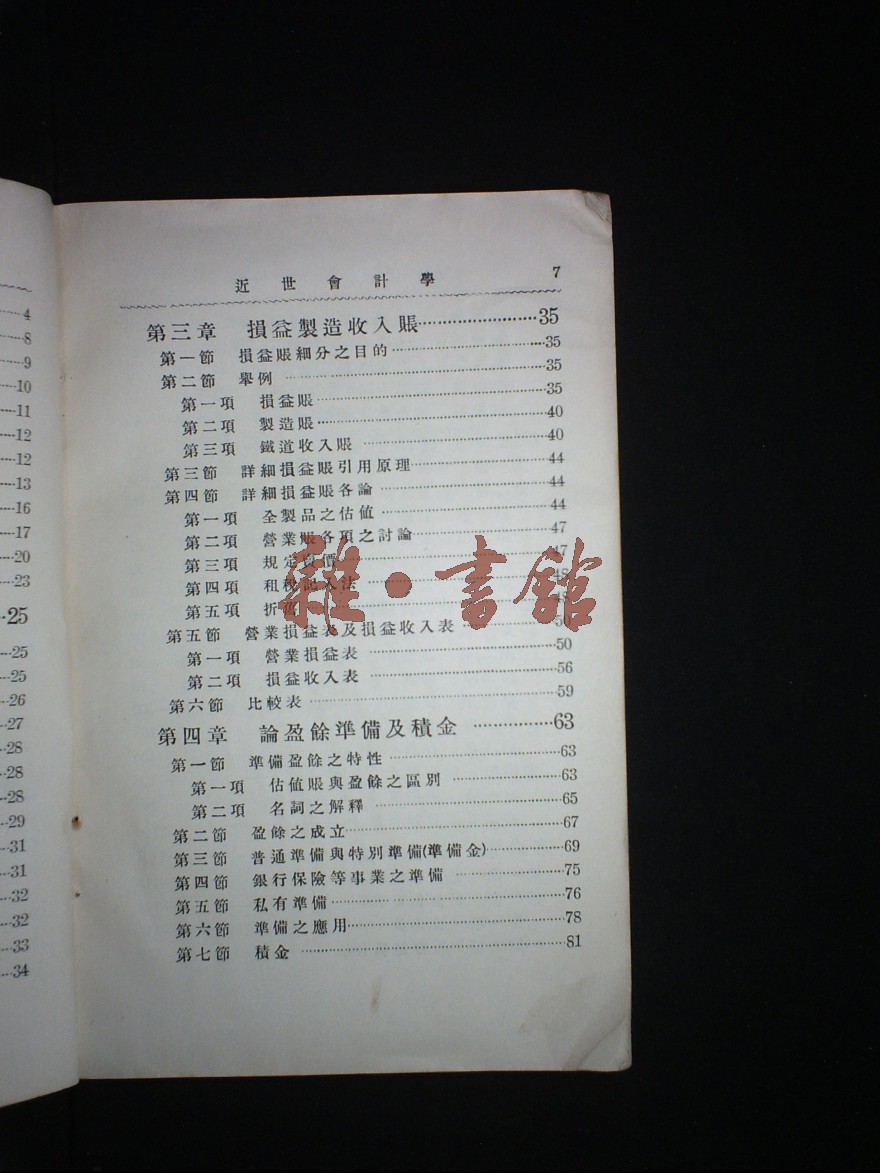 4
8
9
10
11
12
12
13
16
17
20
23
25
25
25
26
27
28
28
28
29
31
31
32
32
33
34
近世會計學 7
第三章 損益製造收入賬 35
第一節 損益賬細分之目的 35
第二節 舉例 35
第一項 損益賬 35
第二項 製造賬 40
第三項 鐵道收入賬 40
第三節 詳細損益賬引用原理 44
第四節 詳細損益賬各論 44
第一項 全製品之估值 44
第二項 營業賬各項之討論 47
第三項 規定 價 47
第四項 租稅記入法 48
第五項 折 48
第五節 營業損益表及損益收入表 50
第一項 營業損益表 50
第二項 損益收入表 56
第六節 比較表 59
第四章 論盈餘準備及積金 63
第一節 準備盈餘之特性 63
第一項 估值賬與盈餘之區別 63
第二項 名詞之解釋 65
第二節 盈餘之成立 67
第三節 普通準備與特別準備(準備金) 69
第四節 銀行保險等事業之準備 75
第五節 私有準備 76
第六節 準備之應用 78
第七節 積金 81
雜·書館